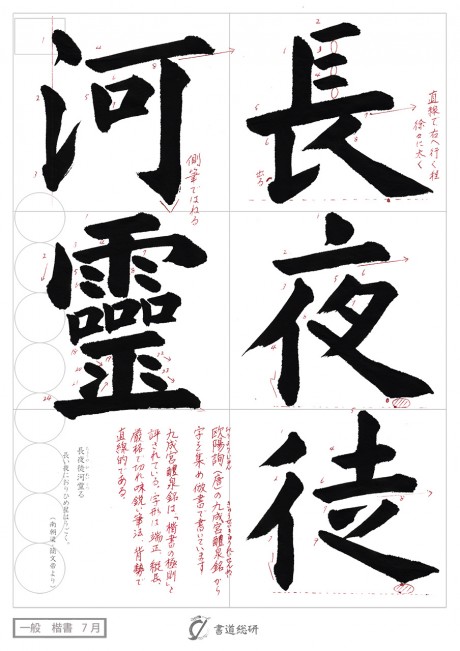 長夜徒
河靈
直線で右へ行く程
徐々に太く
出る
側筆ではねる
欧陽詢(唐)の九成宮醴泉銘から
字を集め倣書で書いています
九成宮醴泉銘は「楷書の極則」と
評されている。字形は端正、縦長、
厳格で切れ味鋭い筆法、背勢で
直線的である。
長夜徒河靈る
一般 楷書 7月
書道総研